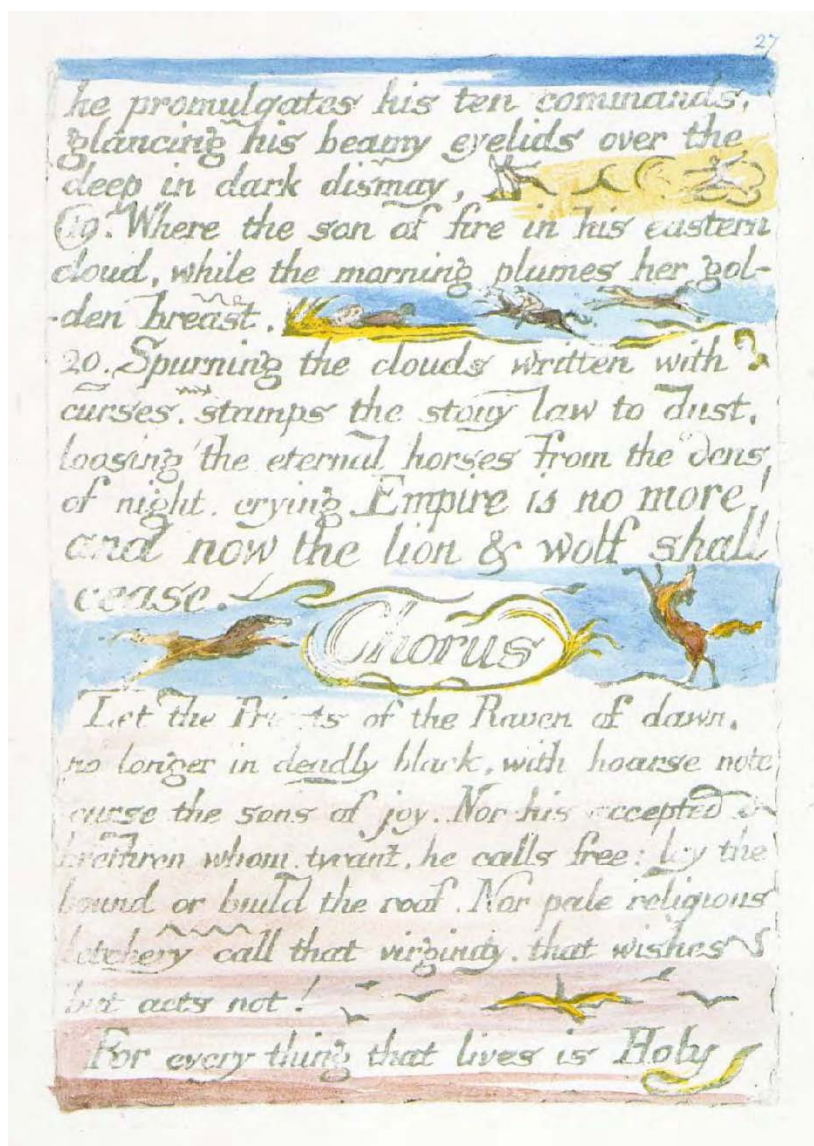 27
he promulgates his ten commands,
glancing his beamy eyelids over the
deep in dark dismay,
19. Where the son of fire in his eastern
cloud, while the morning plumes her gol-
-den breast.
20. Spurning the clouds written with
curses. stamps the stony law to dust,
loosing the eternal horses from the dens
of night. crying Empire is no more!
and now the lion & wolf shall
cease.
Chorus
Let the Priests of the Raven of dawn,
no longer in deadly black, with hoarse note
curse the sons of joy. Nor his accepted
brethren whom. tyrant, he calls free: lay the
bound or build the roof. Nor pale religious
letchery call that virginity. that wishes
but acts not!
For every thing that lives is Holy